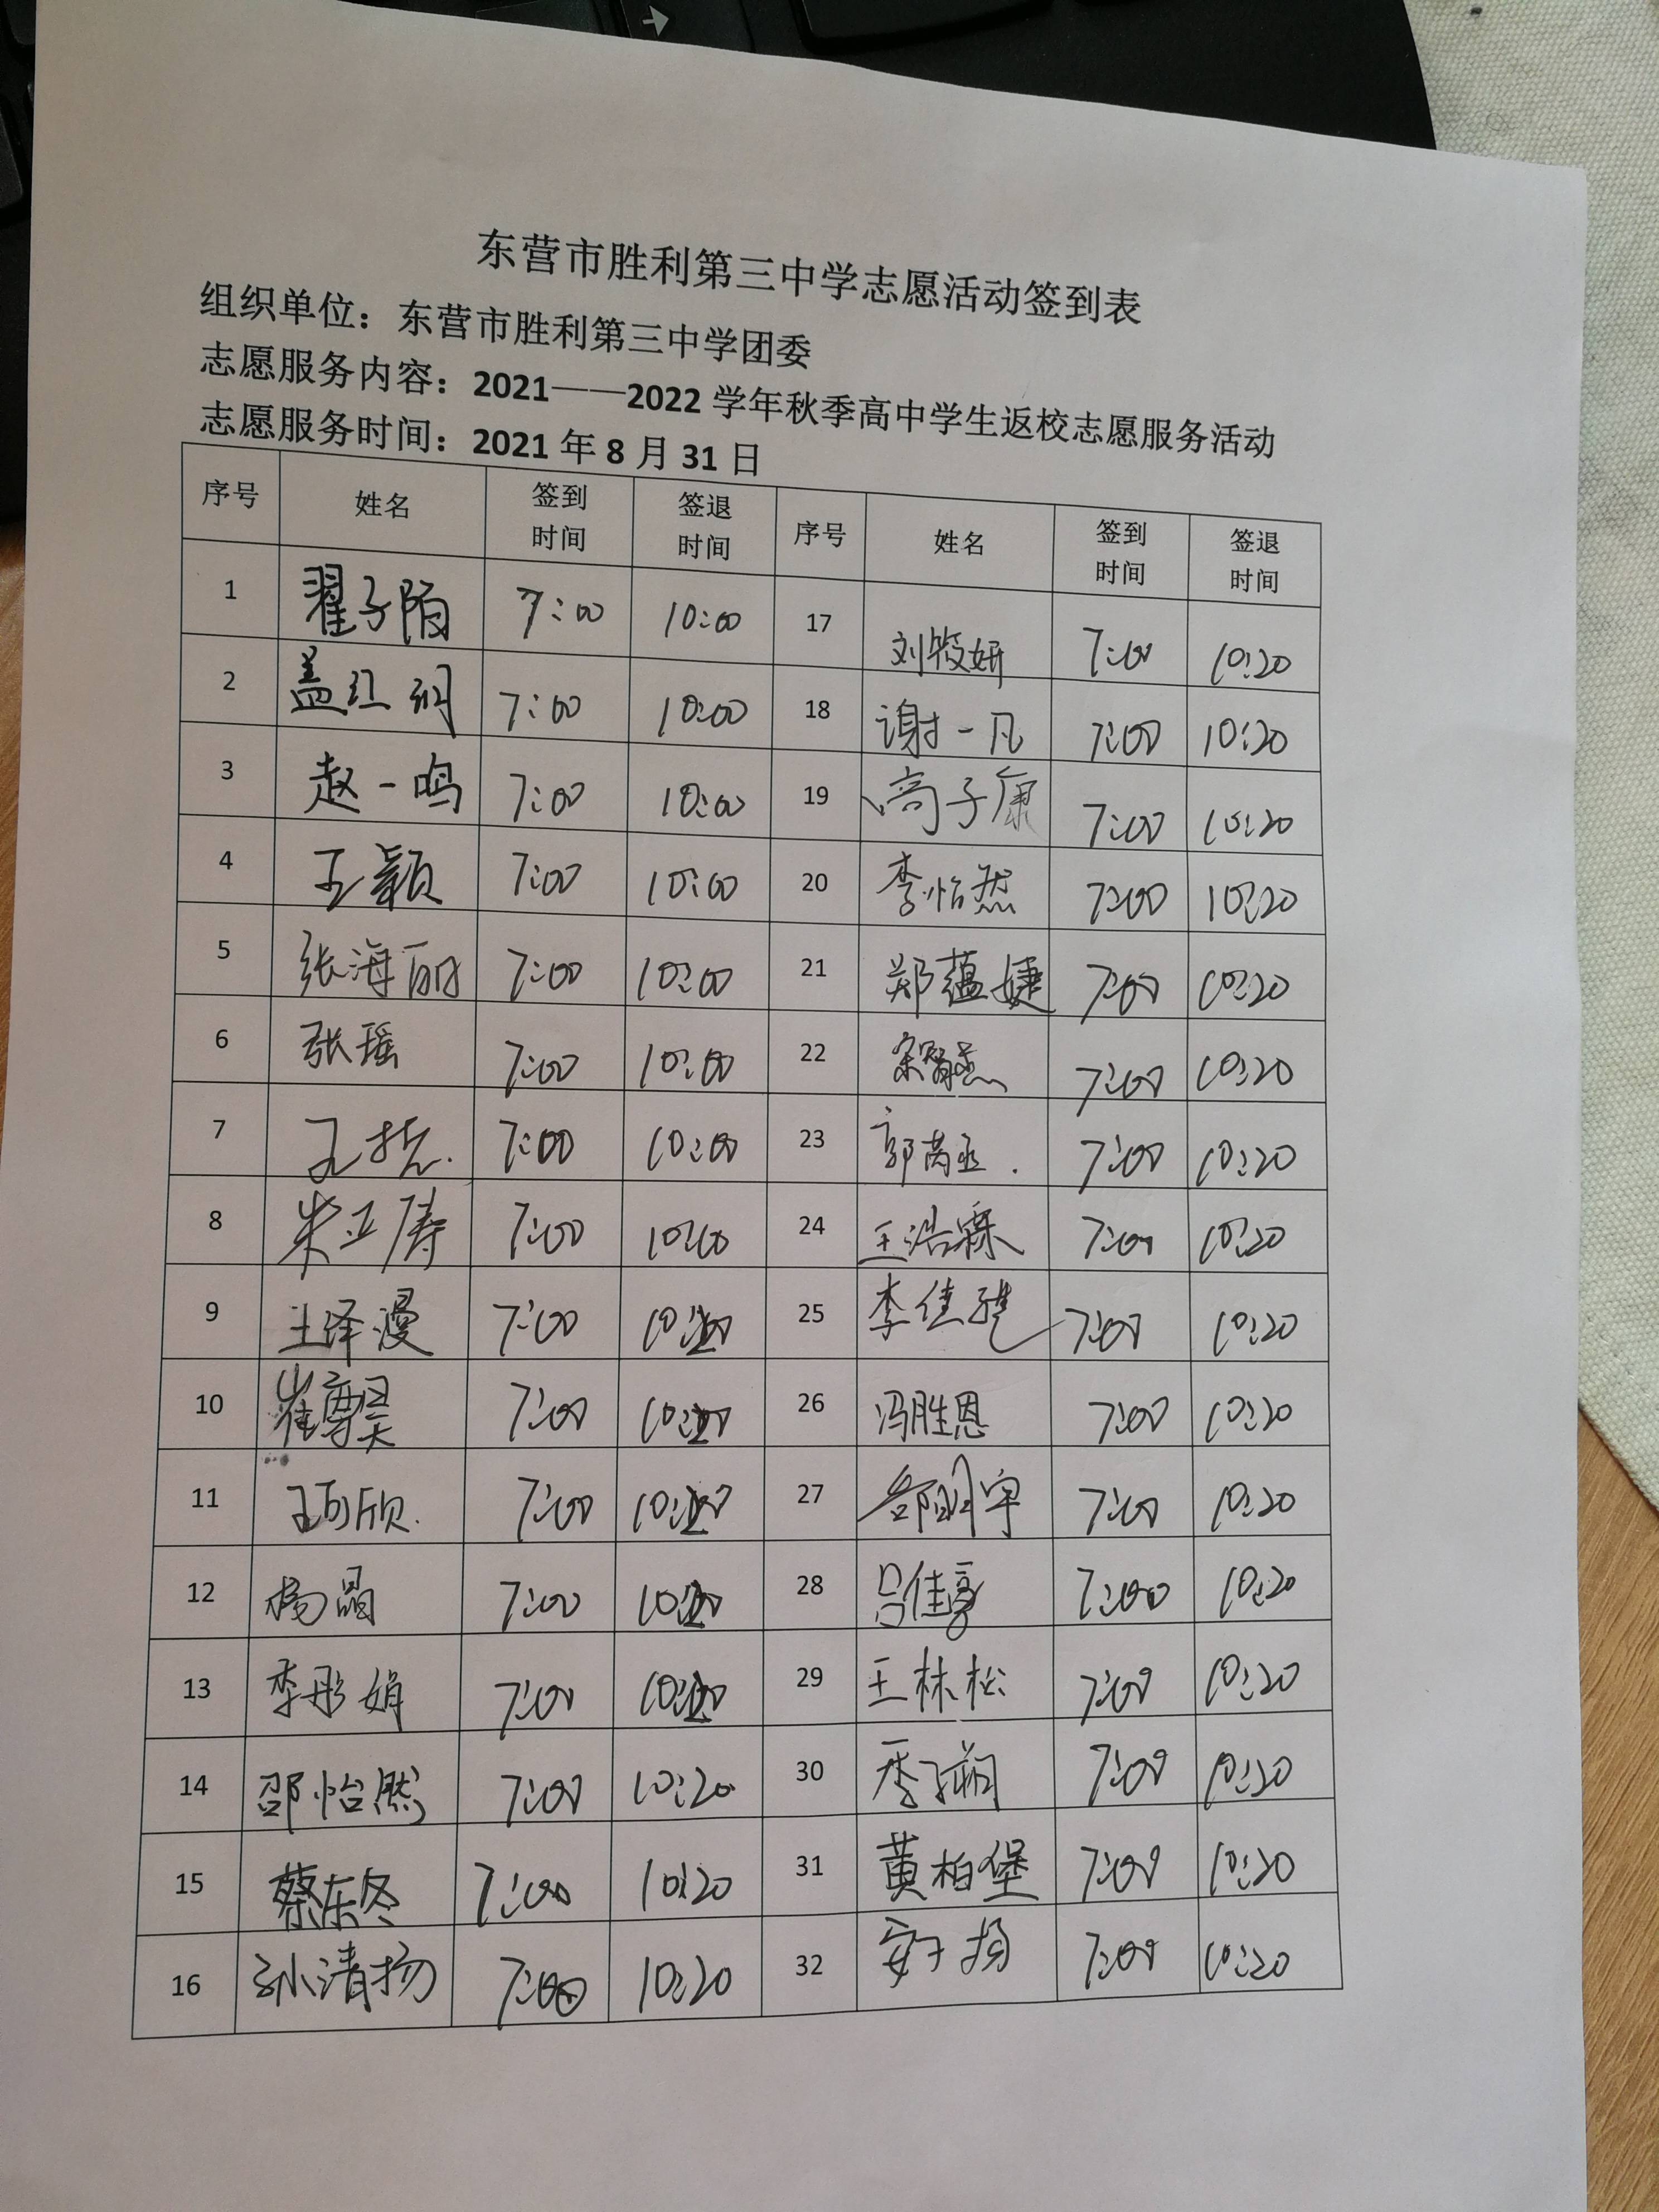 东营市胜利第三中学志愿活动签到表
组织单位：东营市胜利第三中学团委
志愿服务内容：2021——2022 学年秋季高中学生返校志愿服务活动
志愿服务时间：2021 年 8 月 31 日
序号 姓名 签到时间 签退时间 序号 姓名 签到时间 签退时间
1 翟子陌 7:00 10:00 17 刘筱妍 7:00 10:20
2 7:00 10:00 18 谢一凡 7:00 10:20
3 赵一鸣 7:00 10:00 19 高子康 7:00 10:20
4 王颖 7:00 10:00 20 李怡然 7:00 10:20
5 张海丽 7:00 10:00 21 郑蕴婕 7:00 10:20
6 张瑶 7:00 10:00 22 7:00 10:20
7 7:00 10:00 23 7:00 10:20
8 朱亚涛 7:00 10:00 24 王浩霖 7:00 10:20
9 王泽漫 7:00 10:20 25 7:00 10:20
10 崔尊昊 7:00 10:20 26 冯胜恩 7:00 10:20
11 王可欣 7:00 10:20 27 7:00 10:20
12 杨晶 7:00 10:20 28 7:00 10:20
13 李彤娟 7:00 10:20 29 王林松 7:00 10:20
14 邵怡然 7:00 10:20 30 7:00 10:20
15 蔡东冬 7:00 10:20 31 黄柏堡 7:00 10:20
16 孙清扬 7:00 10:20 32 安子扬 7:00 10:20